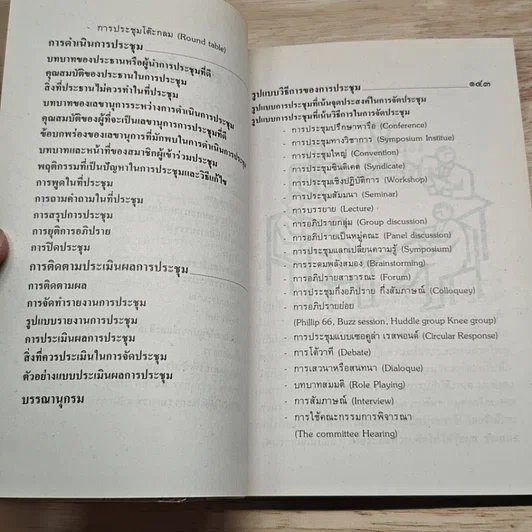 - การประชุมโต๊ะกลม (Round table)
การดำเนินการประชุม
บทบาทของประธานหรือผู้นำการประชุมที่ดี
คุณสมบัติของประธานในการประชุม
สิ่งที่ประธานไม่ควรทำในที่ประชุม
บทบาทของเลขานุการระหว่างการดำเนินการประชุม
คุณสมบัติของผู้ที่จะเป็นเลขานุการการประชุมที่ดี
ข้อบกพร่องของเลขานุการที่มักพบในการดำเนินการประชุม
บทบาทและหน้าที่ของสมาชิกผู้เข้าร่วมประชุม
พฤติกรรมที่เป็นปัญหาในการประชุมและวิธีแก้ไข
การพูดในที่ประชุม
การถามคำถามในที่ประชุม
การสรุปการประชุม
การยุติการอภิปราย
การปิดประชุม
การติดตามประเมินผลการประชุม
การติดตามผล
การจัดทำรายงานการประชุม
รูปแบบรายงานการประชุม
การประเมินผลการประชุม
สิ่งที่ควรประเมินในการจัดประชุม
ตัวอย่างแบบประเมินผลการประชุม
บรรณานุกรม
รูปแบบวิธีการของการประชุม ๑๔๓
รูปแบบการประชุมที่เน้นจุดประสงค์ในการจัดประชุม
รูปแบบการประชุมที่เน้นวิธีการในการจัดประชุม
- การประชุมปรึกษาหารือ (Conference)
- การประชุมทางวิชาการ (Symposium Institue)
- การประชุมใหญ่ (Convention)
- การประชุมซินดิเคต (Syndicate)
- การประชุมเชิงปฏิบัติการ (Workshop)
- การประชุมสัมมนา (Seminar)
- การบรรยาย (Lecture)
- การอภิปรายกลุ่ม (Group discussion)
- การอภิปรายเป็นหมู่คณะ (Panel discussion)
- การประชุมแลกเปลี่ยนความรู้ (Symposium)
- การระดมพลังสมอง (Brainstorming)
- การอภิปรายสาธารณะ (Forum)
- การประชุมกึ่งอภิปราย กึ่งสัมภาษณ์ (Colloquey)
- การอภิปรายย่อย
(Phillip 66, Buzz session, Huddle group Knee group)
- การประชุมแบบเซอคูล่า เรสพอนด์ (Circular Response)
- การโต้วาที (Debate)
- การเสวนาหรือสนทนา (Dialoque)
- บทบาทสมมติ (Role Playing)
- การสัมภาษณ์ (Interview)
- การใช้คณะกรรมการพิจารณา
(The committee Hearing)